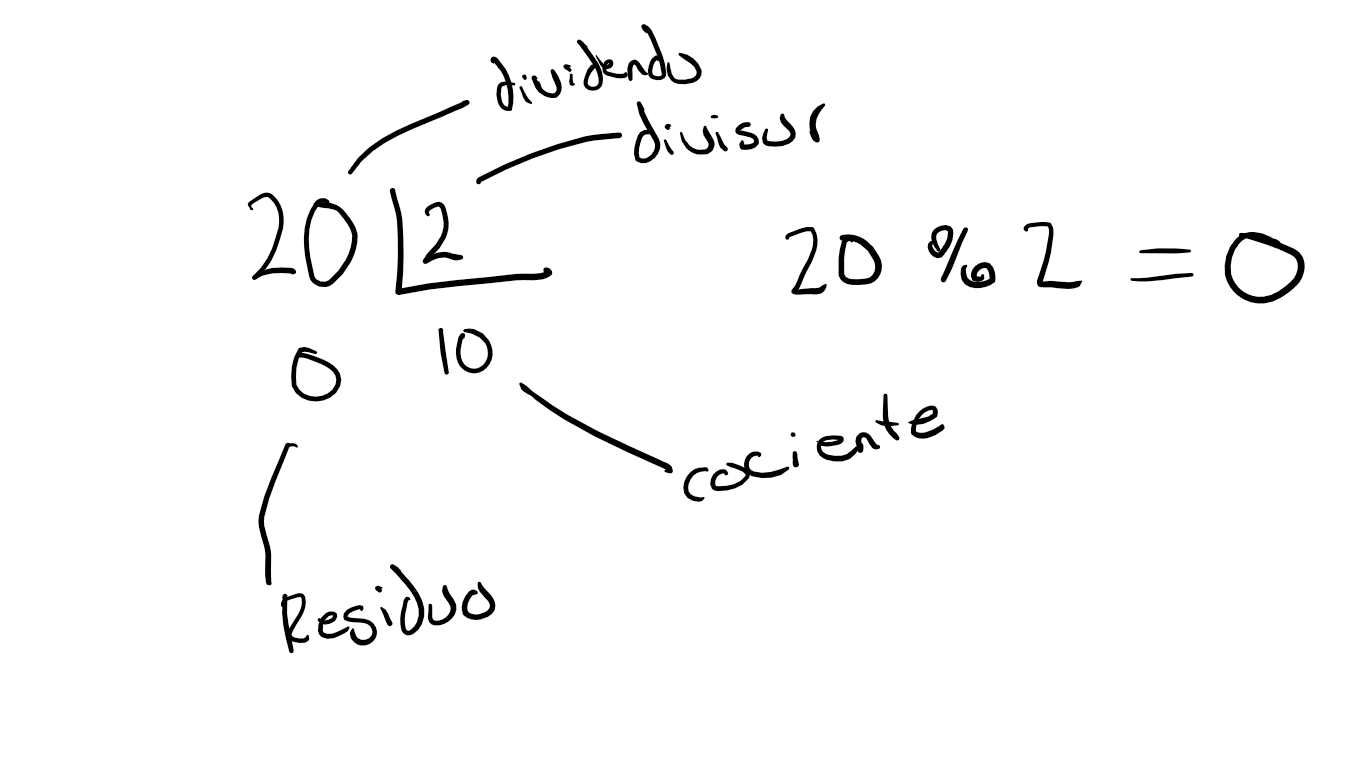 dividendo
divisor
20 2
20 % 2 = 0
0 10
cociente
Residuo